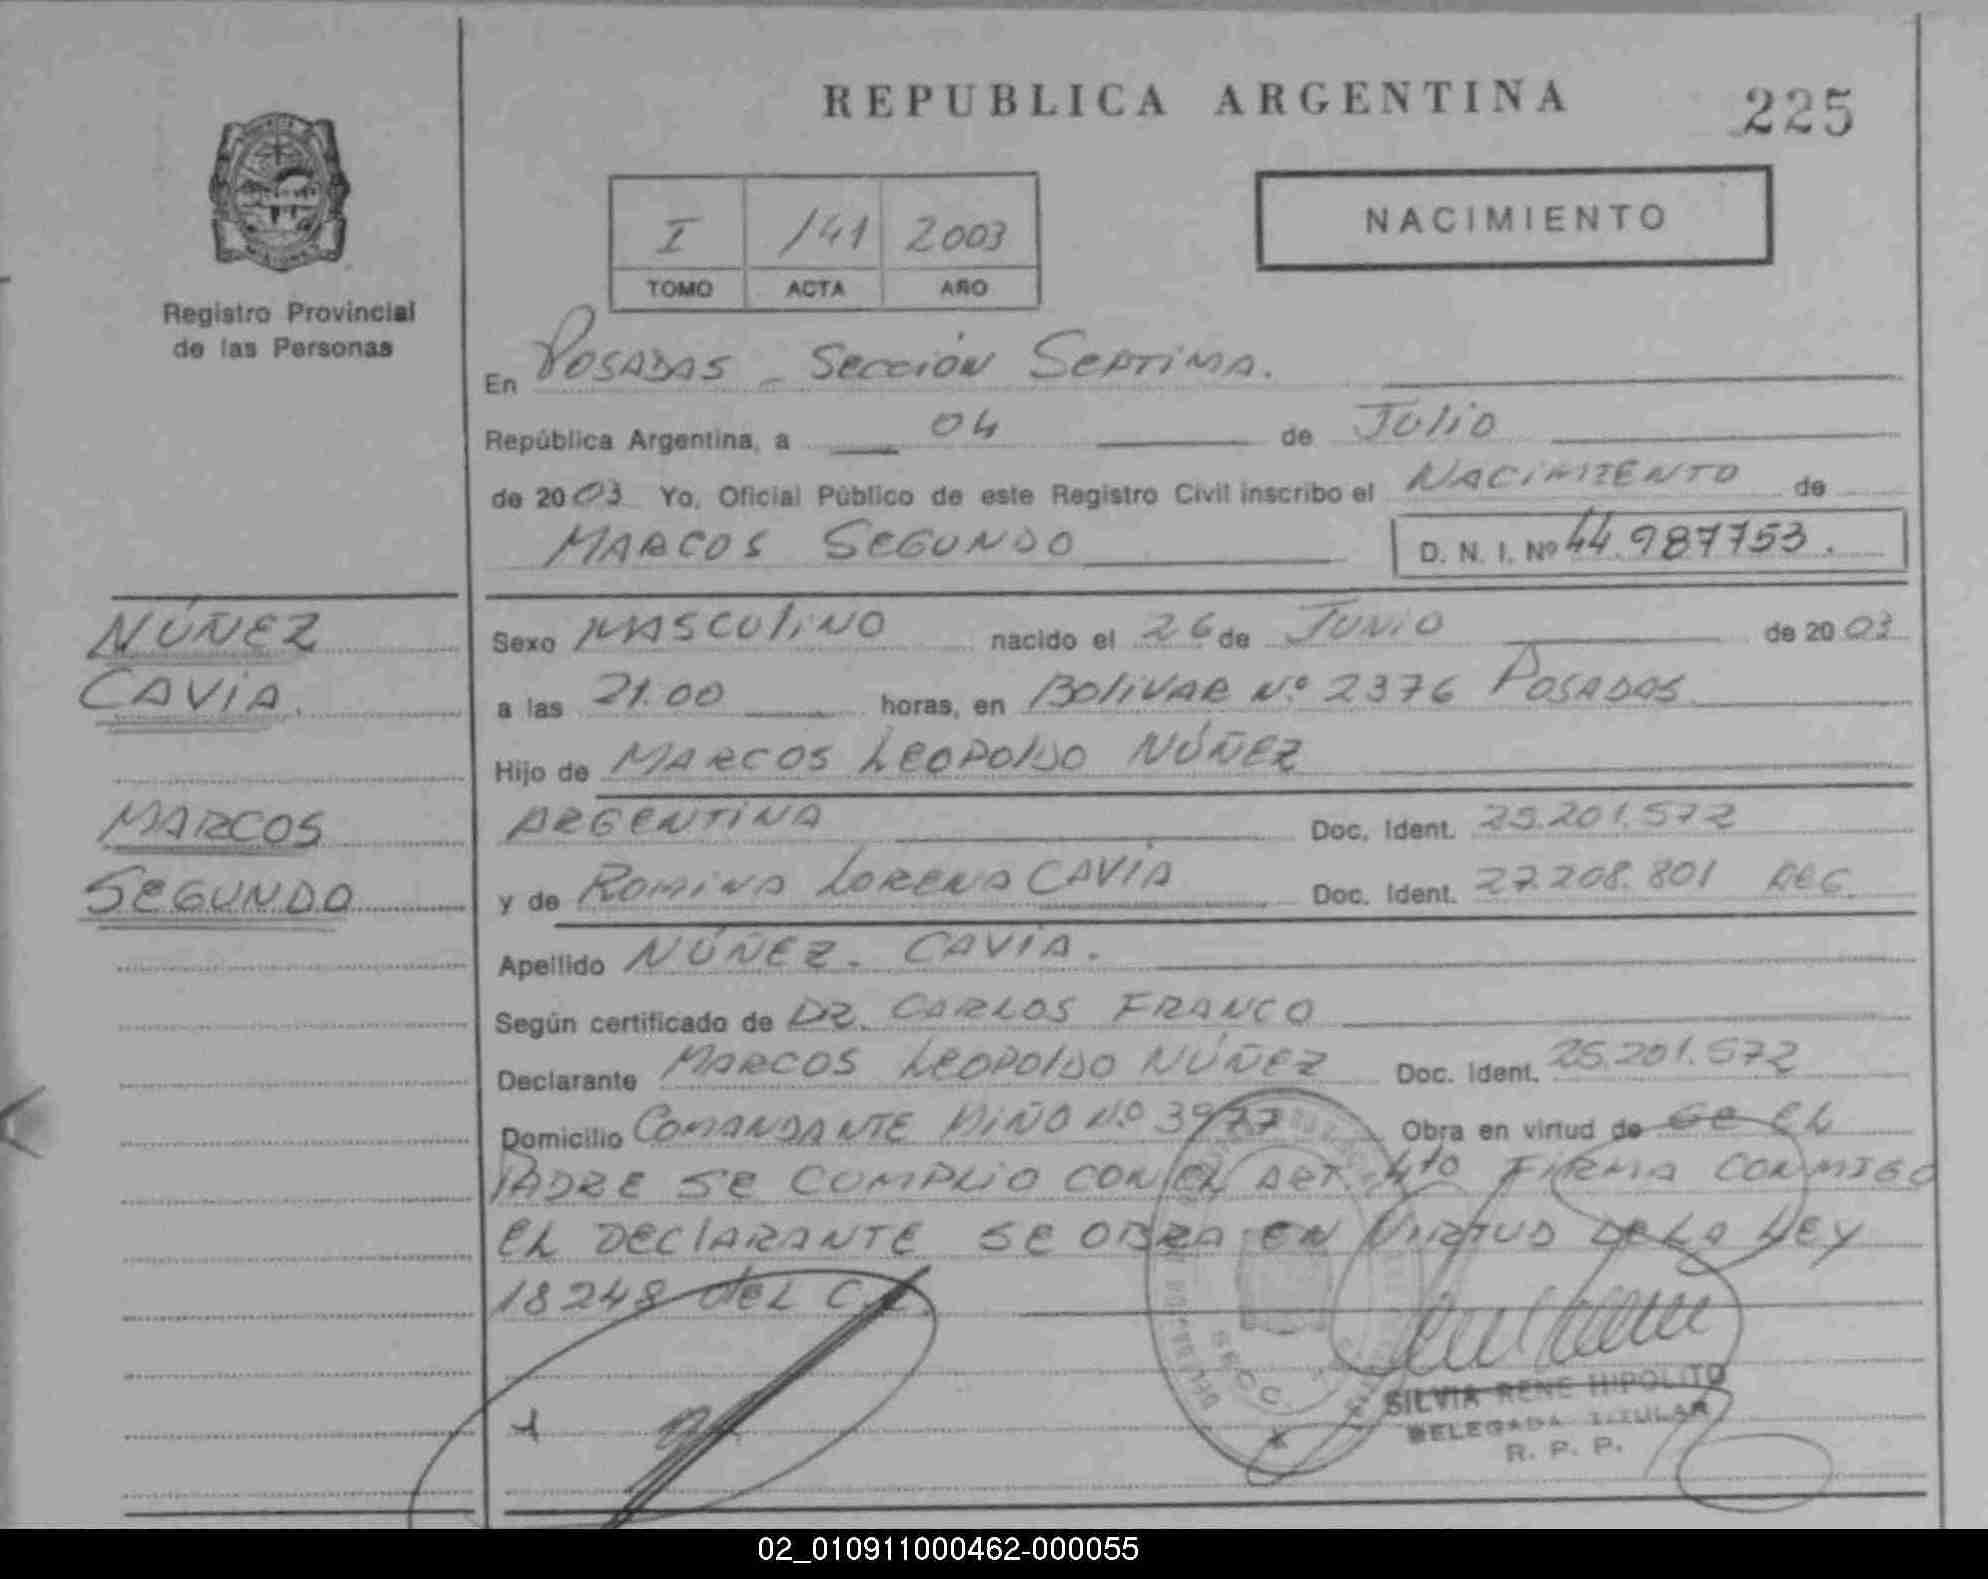 REPUBLICA ARGENTINA
225
Registro Provincial
de las Personas
I /41 2003
TOMO ACTA AÑO
NACIMIENTO
En POSADAS - SECCIÓN SEPTIMA.
República Argentina, a 04 de JULIO
de 2003 Yo, Oficial Público de este Registro Civil inscribo el NACIMIENTO de
MARCOS SEGUNDO
D. N. I. Nº 44.987753.
NÚÑEZ
CAVIA.
MARCOS
SEGUNDO
Sexo MASCULINO nacido el 26 de JUNIO de 2003
a las 21.00 horas, en BOLIVAR Nº 2376 POSADAS
Hijo de MARCOS LEOPOLDO NÚÑEZ
ARGENTINA Doc. Ident. 25.201.572
y de ROMINA LORENA CAVIA Doc. Ident. 27.208.801 ARG.
Apellido NÚÑEZ. CAVIA.
Según certificado de DR. CARLOS FRANCO
Declarante MARCOS LEOPOLDO NÚÑEZ Doc. Ident. 25.201.572
Domicilio COMANDANTE MIÑO Nº 3977 Obra en virtud de SE EL
PADRE SE CUMPLIO CON EL ART. 4to FIRMA CONMIGO
EL DECLARANTE SE OBRA EN VIRTUD DE LA LEY
18248 DEL C.C.
SILVIA RENE HIPOLITO
DELEGADA TITULAR
R. P. P.
02_010911000462-000055